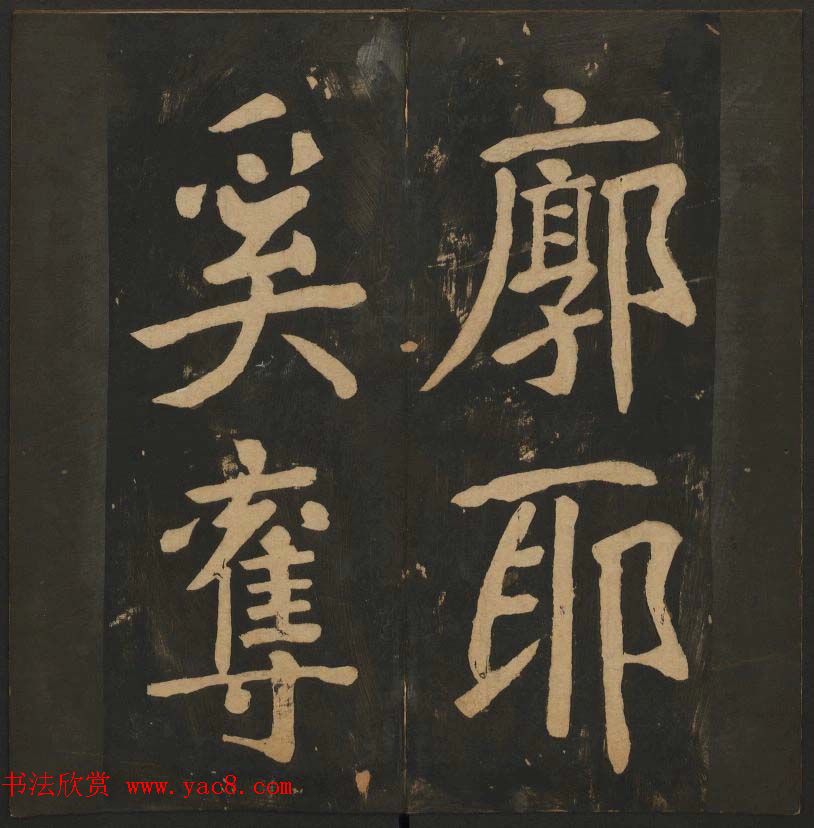 廓耶
奚奪
书法欣赏 www.yac8.com